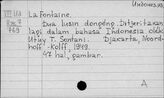 Unknown
VIII
La Fontaine.
Dua lusin dongéng. Ditjeritakan
769 lagi dalam bahasa Indonesia oléh
Utuy T. Sontani. Djakarta, Noord-
hoff-Kolff, 1949.
47 hal, gambar.
A